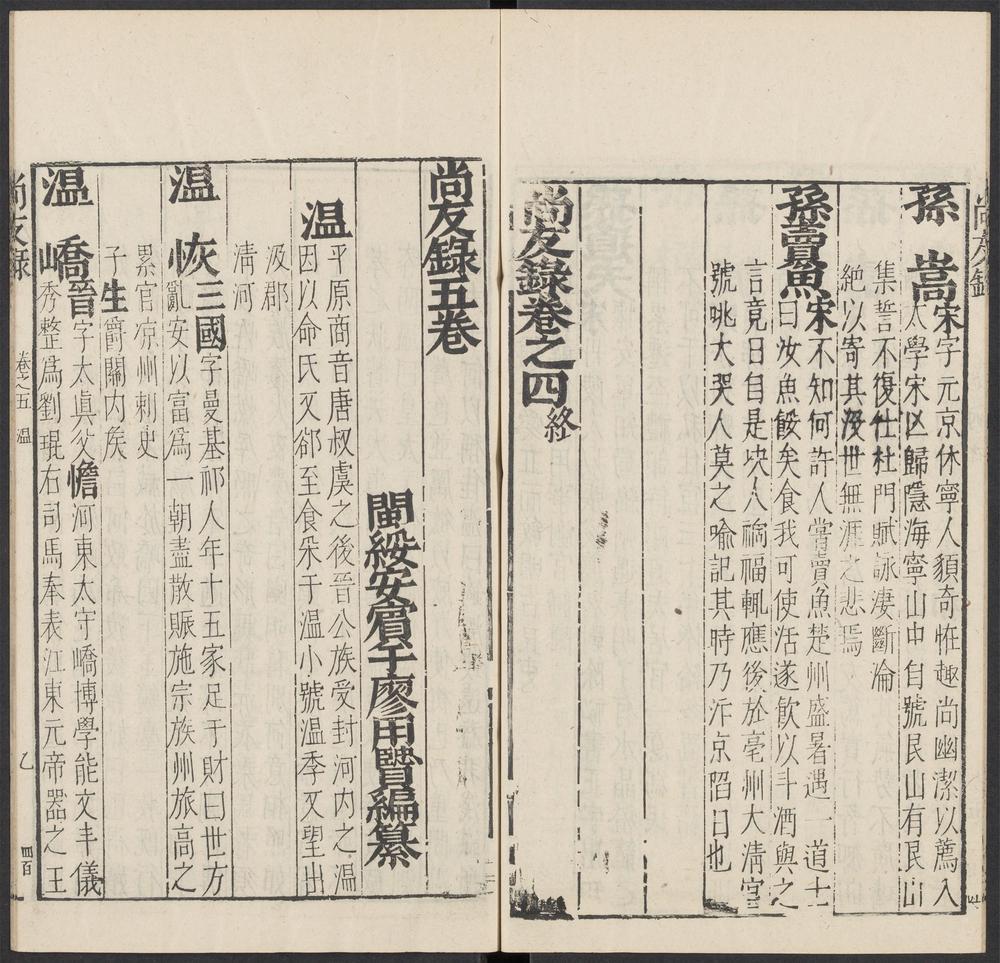 孫嵩宋字元京休寧人額奇恠趣尚幽潔以薦入
太學宋亾歸隱海寧山中自號艮山有艮山
集誓不復仕杜門賦詠淒斷淪
絶以寄其沒世無涯之悲焉
孫賣魚宋不知何許人嘗賣魚楚州盛暑遇一道士
曰汝魚餒矣食我可使活遂飲以斗酒與之
言竟日自是决人禍福輒應後於亳州大淸宮
號咷大哭人莫之喻記其時乃汴京陷日也
尚友錄卷之四終
尚友錄五卷
閩綏安賓于廖用賢編纂
溫平原商音唐叔虞之後晉公族受封河内之溫
因以命氏又郤至食采于溫小號溫季又望出
汲郡
淸河
溫恢三國字曼基祁人年十五家足于財曰世方
亂安以富爲一朝盡散賑施宗族州旅高之
累官凉州刺史
子生爵關内矦
溫嶠晉字太眞父憺河東太守嶠博學能文丰儀
秀整爲劉琨右司馬奉表江東元帝器之王
尚友錄
卷之五
溫
乙
四百
尚友錄